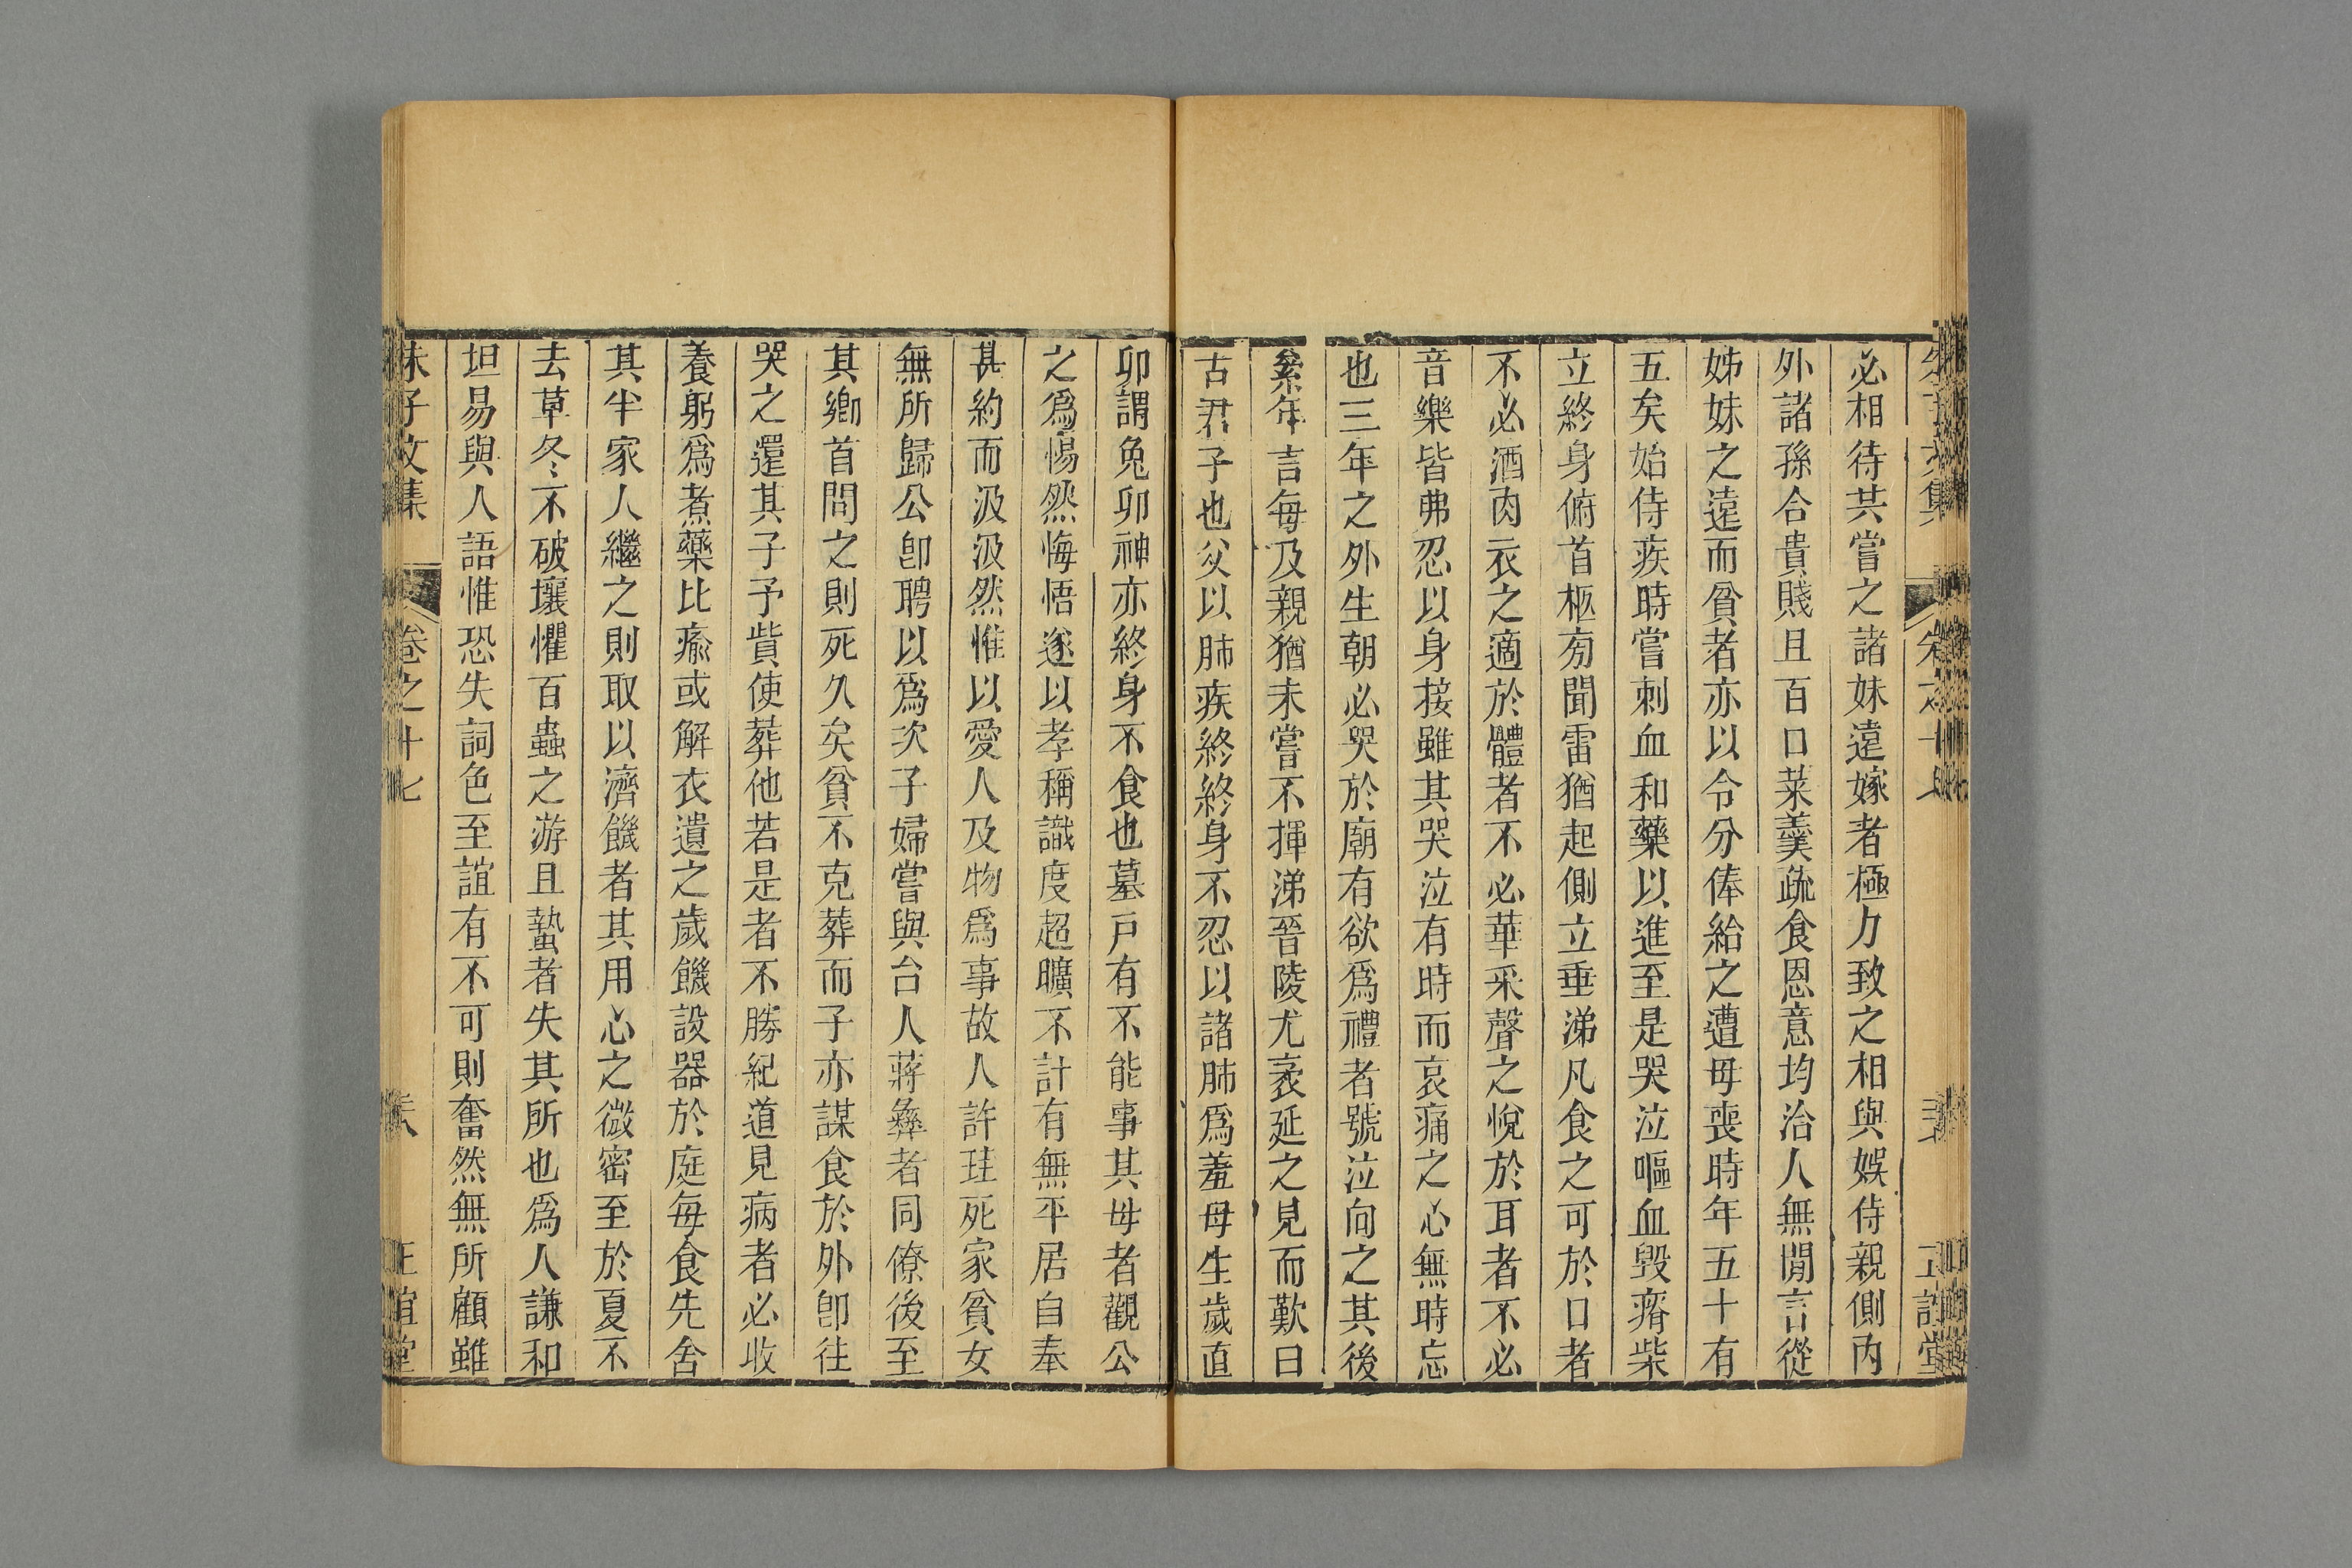 必相待共嘗之諸妹遠嫁者極力致之相與娛侍親側內
外諸孫合貴賤且百口菜羹疏食恩意均洽人無閒言從
姊妹之遠而貧者亦以令分俸給之遭母喪時年五十有
五矣始侍疾時嘗刺血和藥以進至是哭泣嘔血毀瘠柴
立終身俯首柩旁聞雷猶起側立垂涕凡食之可於口者
不必酒肉衣之適於體者不必華采聲之悅於耳者不必
音樂皆弗忍以身接雖其哭泣有時而哀痛之心無時忘
也三年之外生朝必哭於廟有欲為禮者號泣向之其後
絫年言每及親猶未嘗不揮涕晉陵尤袤延之見而歎曰
古君子也父以肺疾終終身不忍以諸肺為羞母生歲直
卯謂兔卯神亦終身不食也墓戶有不能事其母者觀公
之為惕然悔悟遂以孝稱識度超曠不計有無平居自奉
甚約而汲汲然惟以愛人及物為事故人許珪死家貧女
無所歸公卽聘以為次子婦嘗與台人蔣彝者同僚後至
其鄉首問之則死久矣貧不克葬而子亦謀食於外卽往
哭之還其子予貲使葬他若是者不勝紀道見病者必收
養躬為煮藥比瘉或解衣遺之歲饑設器於庭每食先舍
其半家人繼之則取以濟饑者其用心之微密至於夏不
去草冬不破壤懼百蟲之游且蟄者失其所也為人謙和
坦易與人語惟恐失詞色至誼有不可則奮然無所顧雖
朱子文集 卷之十七 正誼堂